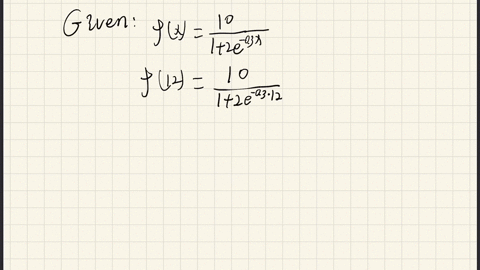 Given: f(x) = 10 / (1+2e^(-0.3x))
f(12) = 10 / (1+2e^(-0.3·12))